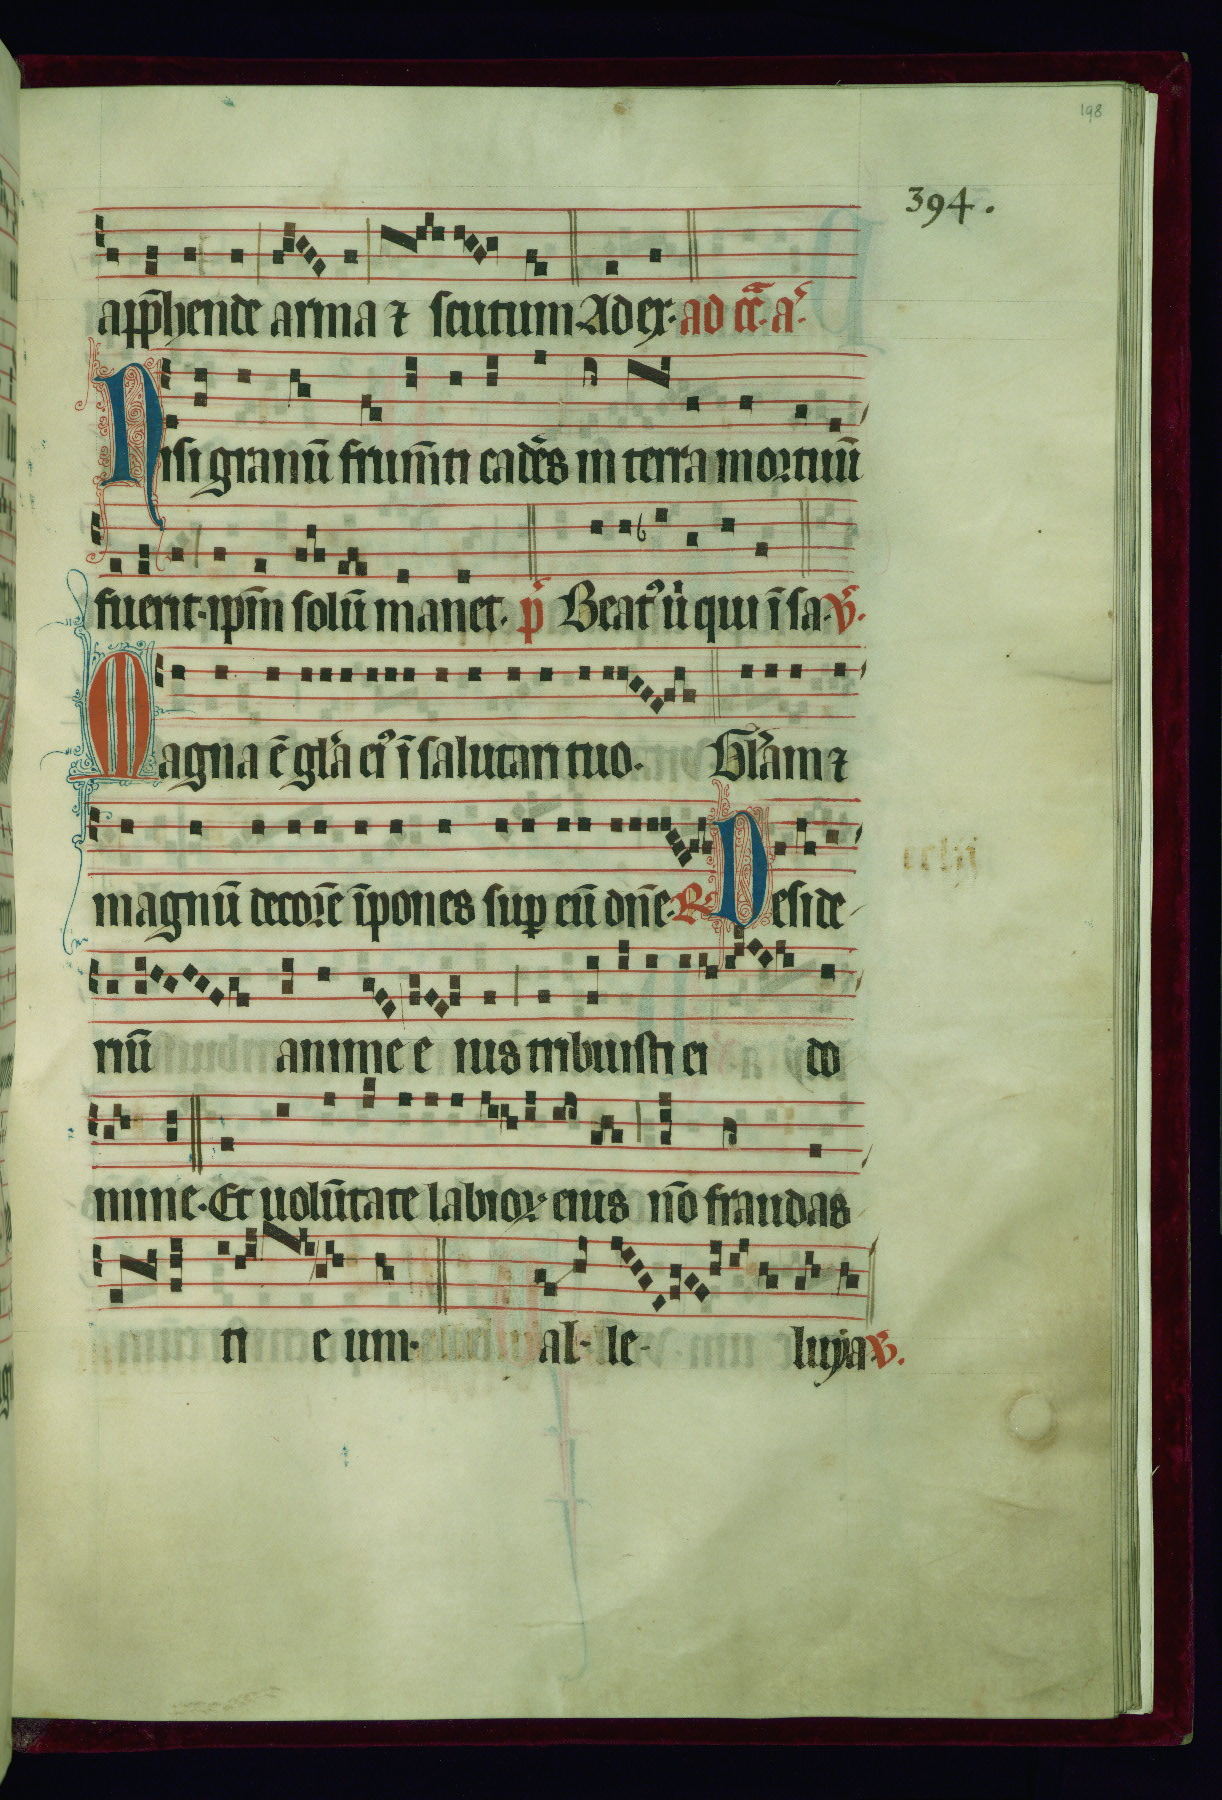 198
394.
app̄hende arma ⁊ scutum Ad ex· ad cc̄· a·
Nisi granū frum̄ti cadēs in terra mortuū
fuerit· ip̄m solū manet· p̄ Beat᾽ u̇ qui ī sa· V̄·
Magna ē gl̄a ei᾽ ī salutari tuo· Gl̄am ⁊
magnū decorē īpones sup eū dn̄e· R Deside
riū anime e ius tribuisti ei do
mine· Et uolūtate labioꝝ eius nō fraudas
ti e um· al- le- luya· V.